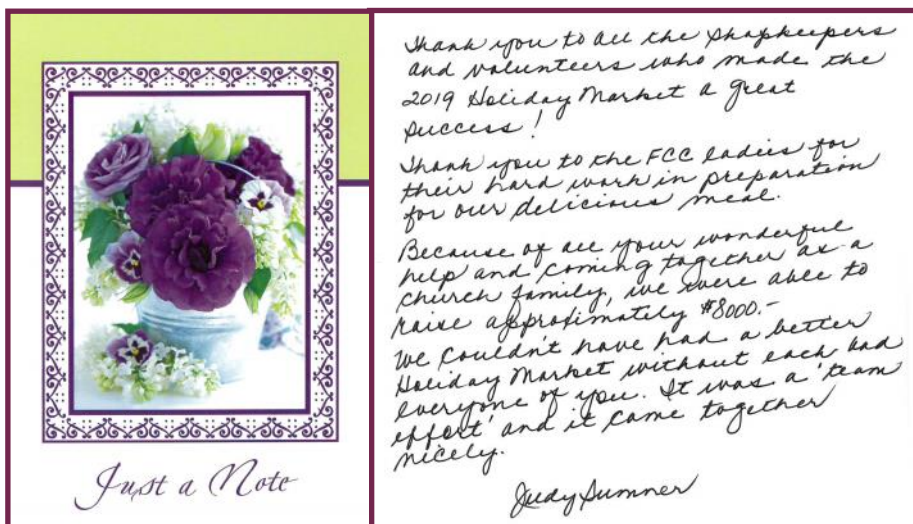 Just a Note
Thank you to all the Shopkeepers
and volunteers who made the
2019 Holiday Market a great
success!
Thank you to the FCC ladies for
their hard work in preparation
for our delicious meal.
Because of all your wonderful
help and coming together as a
church family, we were able to
raise approximately $8000.-
We couldn't have had a better
Holiday Market without each and
everyone of you. It was a 'team
effort' and it came together
nicely.
Judy Sumner